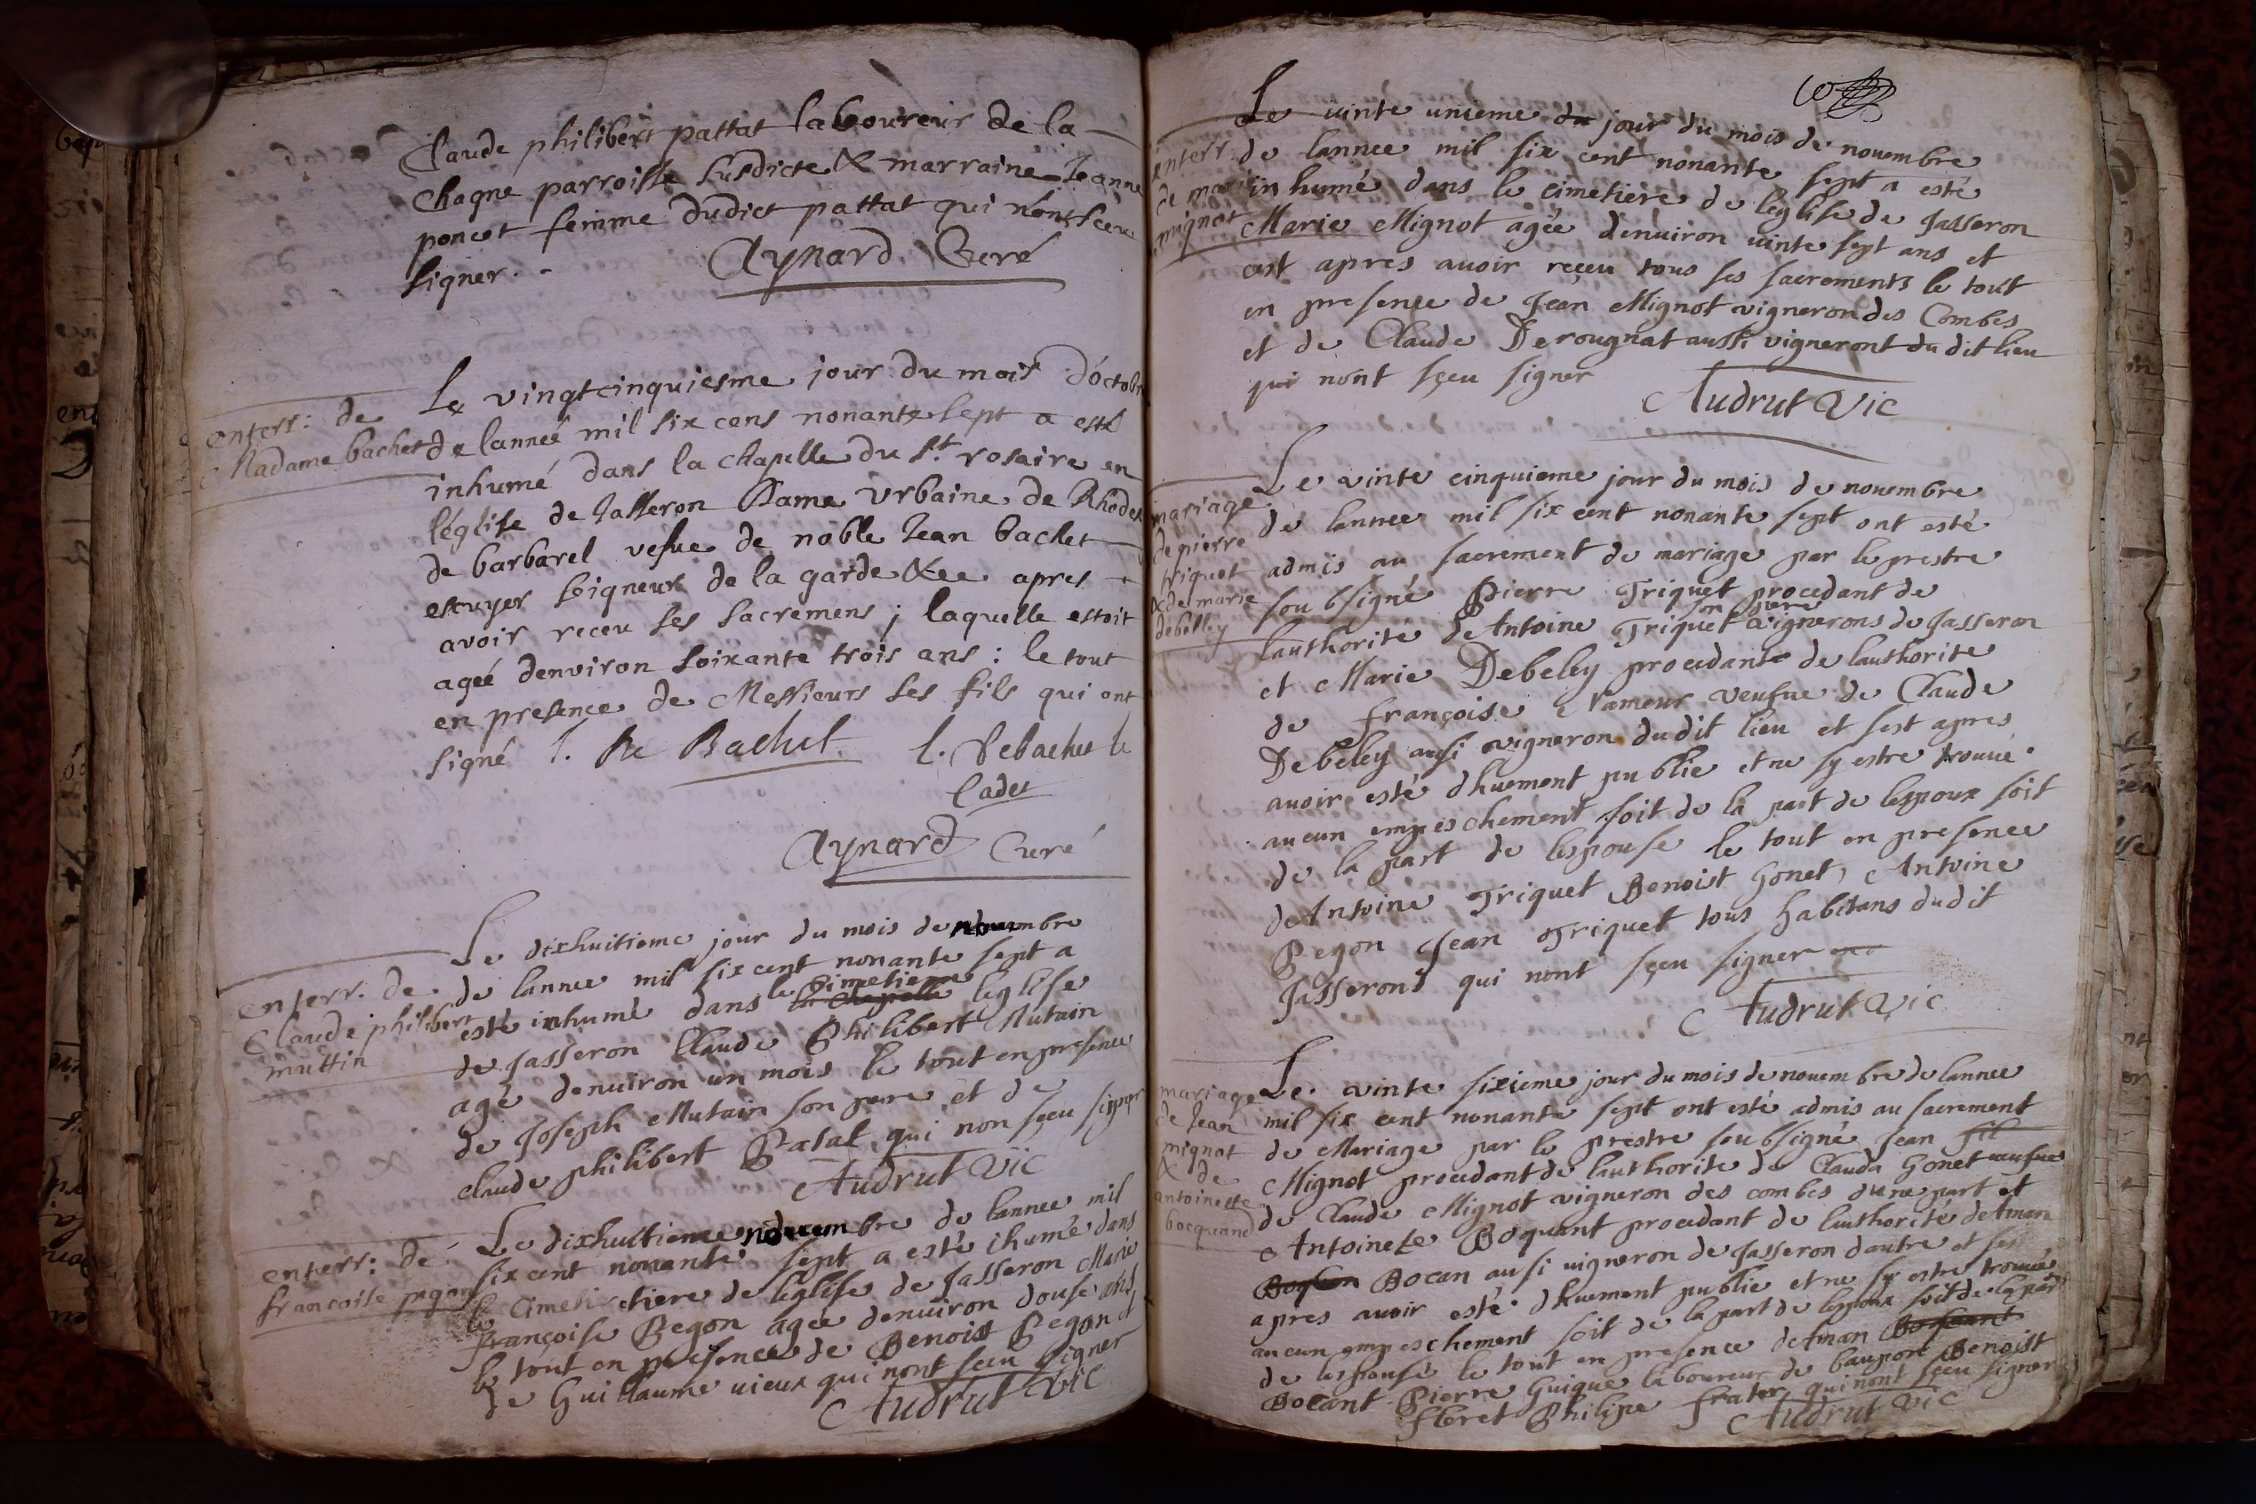 Claude philibert pattat laboureur de la
Chagne parroisse susdicte & marraine Jeanne
poncet femme dudict pattat qui n'ont sceu
signer. -
Aynard Curé
enterr: de
Madame bachet
Le vingtcinquiesme jour du mois d'octobre
de lanneé mil six cens nonante sept a esté
inhumé dans la chapelle du St rosaire en
l'église de Jasseron Dame Urbaine de Rhodes
de barbarel vefue de noble Jean bachet
escuyer seigneur de la garde &ce apres
avoir receu ses sacremens ; laquelle estoit
ageé denviron soixante trois ans : le tout
en presence de Messieurs ses fils qui ont
signé J. De Bachet. L. Debachet le
Cadet
Aynard Curé
enterr. de
Claude philibert
muttin
Le dixhuitieme jour du mois de nouembre
de lannee mil six cent nonante sept a
esté inhumé dans le cimetiere la chapelle leglise
de Jasseron Claude Philibert Mutain
agé denuiron un mois le tout en presence
de Joseph Mutain son pere et de
claude philibert Patat qui non sçeu signer
Audrut Vic
enterr: de
francoise pegon
Le dixhuitieme nouembre de lannee mil
six cent nonante sept a esté ihumé dans
le Cimetiere de leglise de Jasseron Marie
françoise Begon agée denuiron douse ans
le tout en presence de Benoist Begon et
de Guillaume uieux qui nont sceu signer
Audrut Vic
enterr.
de marie
mignot
Le uinte unieme du jour du mois de nouembre
de lannee mil six cent nonante sept a esté
inhumé dans le cimetiere de leglise de Jasseron
Marie Mignot agée denuiron uinte sept ans et
cest apres auoir reçeu tous ses sacrements le tout
en presence de Jean Mignot vigneron des Combes
et de Claude Derougnat aussi vigneront du dit lieu
qui nont sçeu signer
Audrut Vic
mariage
de pierre
triquet
& de marie
debelley
Le vinte cinquieme jour du mois de nouembre
de lannee mil six cent nonante sept ont esté
admis au sacrement de mariage par le prestre
soubsigné Pierre Triquet procedant de
lauthorité de Antoine Triquet son pere vignerons de Jasseron
et Marie Debeley procedante de lauthorite
de françoise Lamour veufue de Claude
Debeley ausi vigneron dudit lieu et sest apres
auoir esté dhuement publie et ne sy estre trouué
aucun empeschement soit de la part de lespoux soit
de la part de lespouse le tout en presence
de Antoine Triquet Benoist Gonet, Antoine
Begon Jean Triquet tous habitans dudit
Jasseront qui nont sçeu signer
Audrut Vic
mariage
de Jean
mignot
& de
antoinette
bocquand
Le vinte sixieme jour du mois de nouembre de lannee
mil six cent nonante sept ont esté admis au sacrement
de Mariage par le prestre soubsigné Jean fil
Mignot procedant de lauthorite de Clauda Gonet ueufue
de Claude Mignot vigneron des combes dune part et
Antoinete Boquant procedant de lauthorité de Aman
Bocan ausi uigneron de Jasseron dautre et sest
apres auoir esté dhuement publie et ne sy estre trouué
aucun empeschement soit de la part de lespoux soit de la part
de lespouse le tout en presence de Aman
Bocant Pierre Guigue laboureur de baupon Benoist
floret Philipe frater qui nont sçeu signer
Audrut Vic